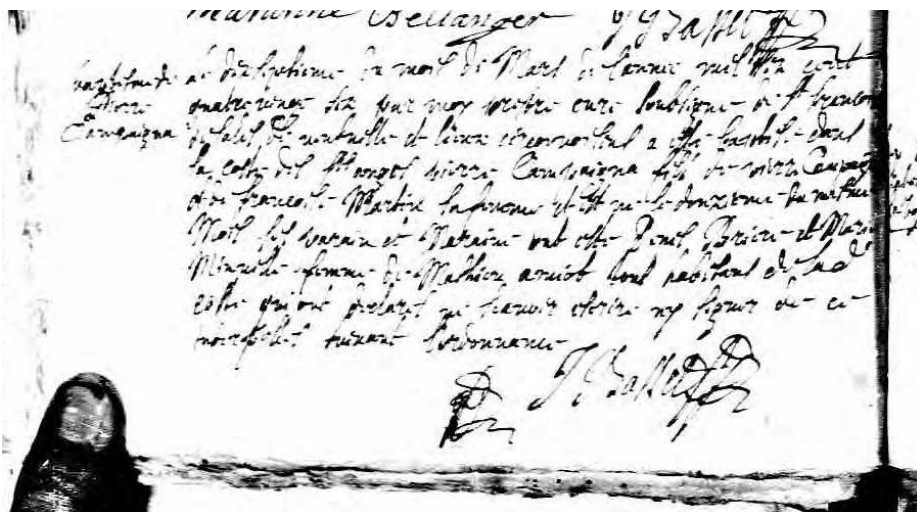 Marianne Bellanger JBasset ptre
baptesme de
Pierre
Campaigna
Le dixseptieme du mois de Mars de lannee mil six cent
quatre vingt six par moy prestre curé soubsigné de st francois
de sales de neufville et lieux circonvoisins a esté baptisé dans
la coste des sts anges pierre Campaigna fils de pierre Campagna
et de francoise Martin sa femme et est né le douzieme du mesme
Mois ses parain et Maraine ont esté René Brisse et Marie
Miville femme de Mathieu amiot tous habitans de lad
coste qui ont declaré ne scavoir escrire ny signer de ce
interpellés suivant lordonnance
JBasset ptre